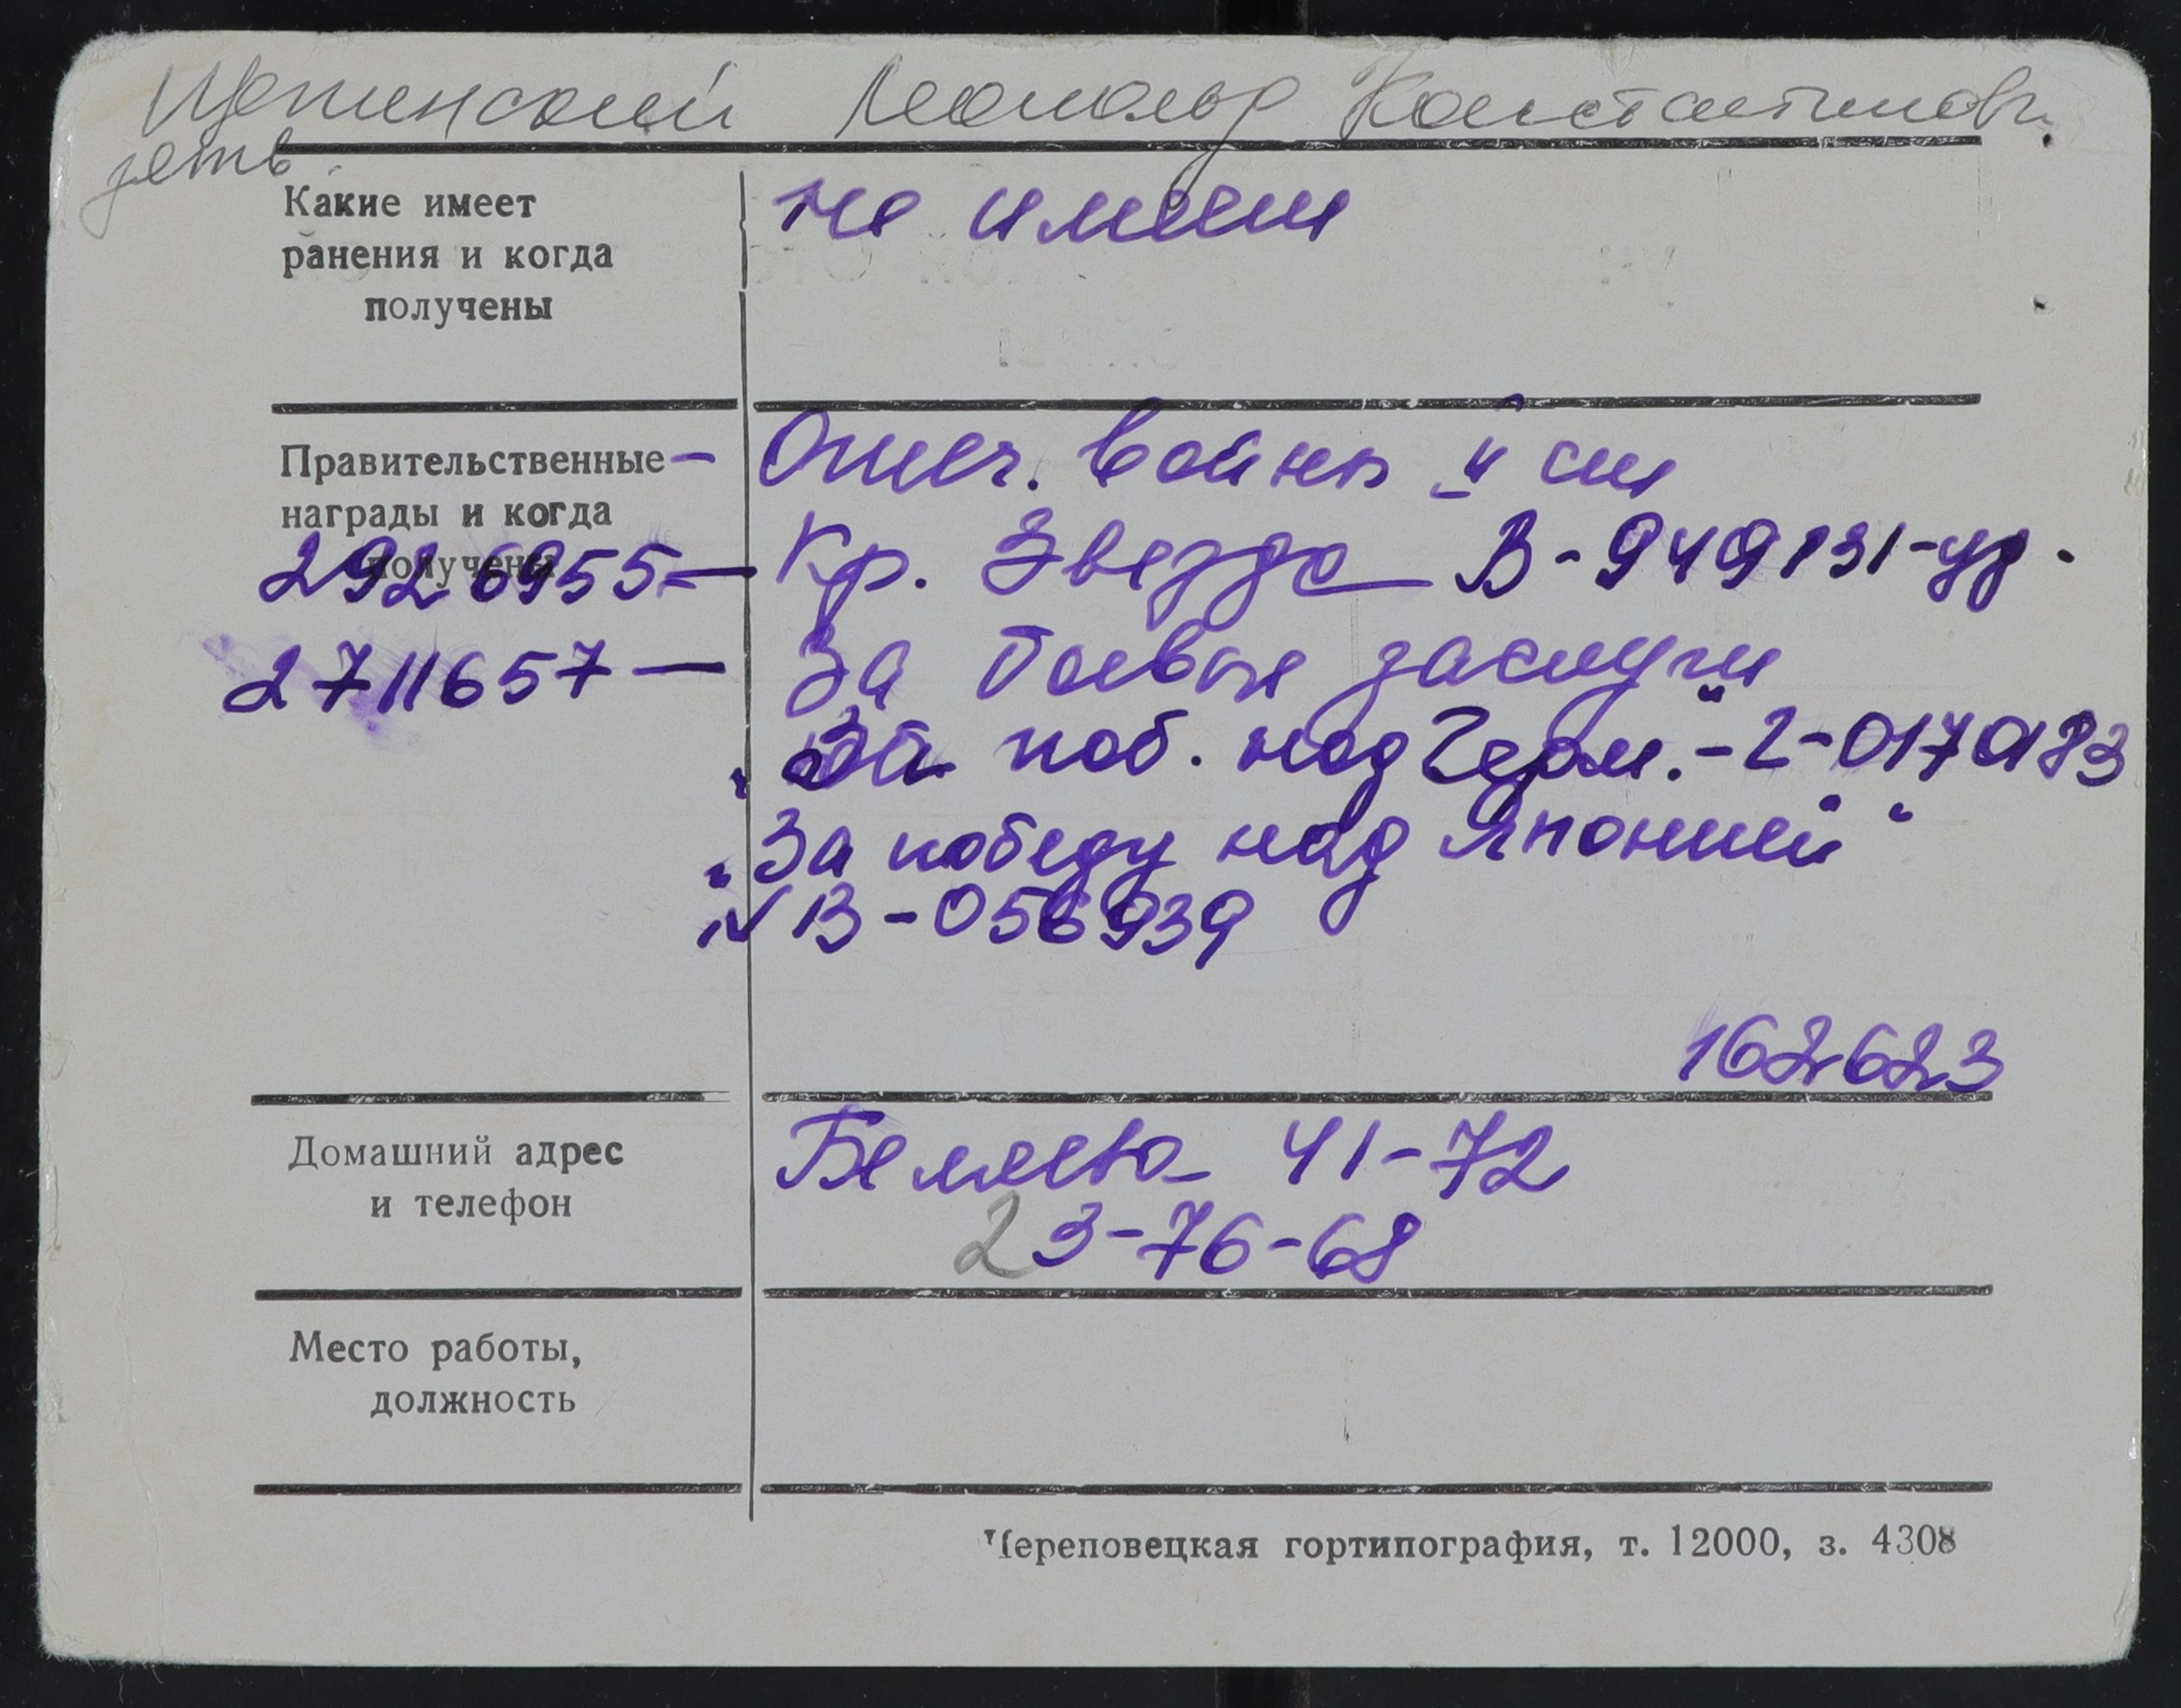 Щепинский Леопольд Константинов.
зять
Какие имеет
ранения и когда
получены
не имеет
Правительственные -
награды и когда
получены
Отеч. войны II ст
2926955 — Кр. Звезда В-949131-уд.
2711657 — За боевые заслуги
„За поб. над Герм." - 2-0170183
„За победу над Японией"
№ В-056939
162623
Домашний адрес
и телефон
Беляева 41-72
23-76-68
Место работы,
должность
Череповецкая гортипография, т. 12000, з. 4308